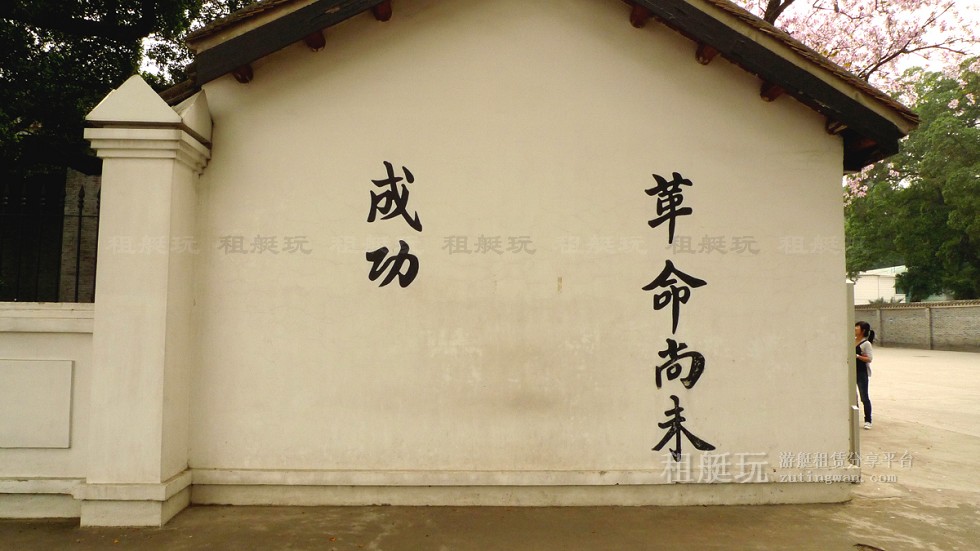 革命尚未
成功
租艇玩 租艇玩 租艇玩 租艇玩 租艇玩 租艇玩 租艇玩
租艇玩 游艇租赁分享平台
zutingwan.com